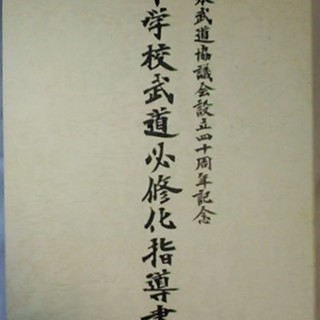 本武道協議会設立四十周年記念
中学校武道必修化指導書